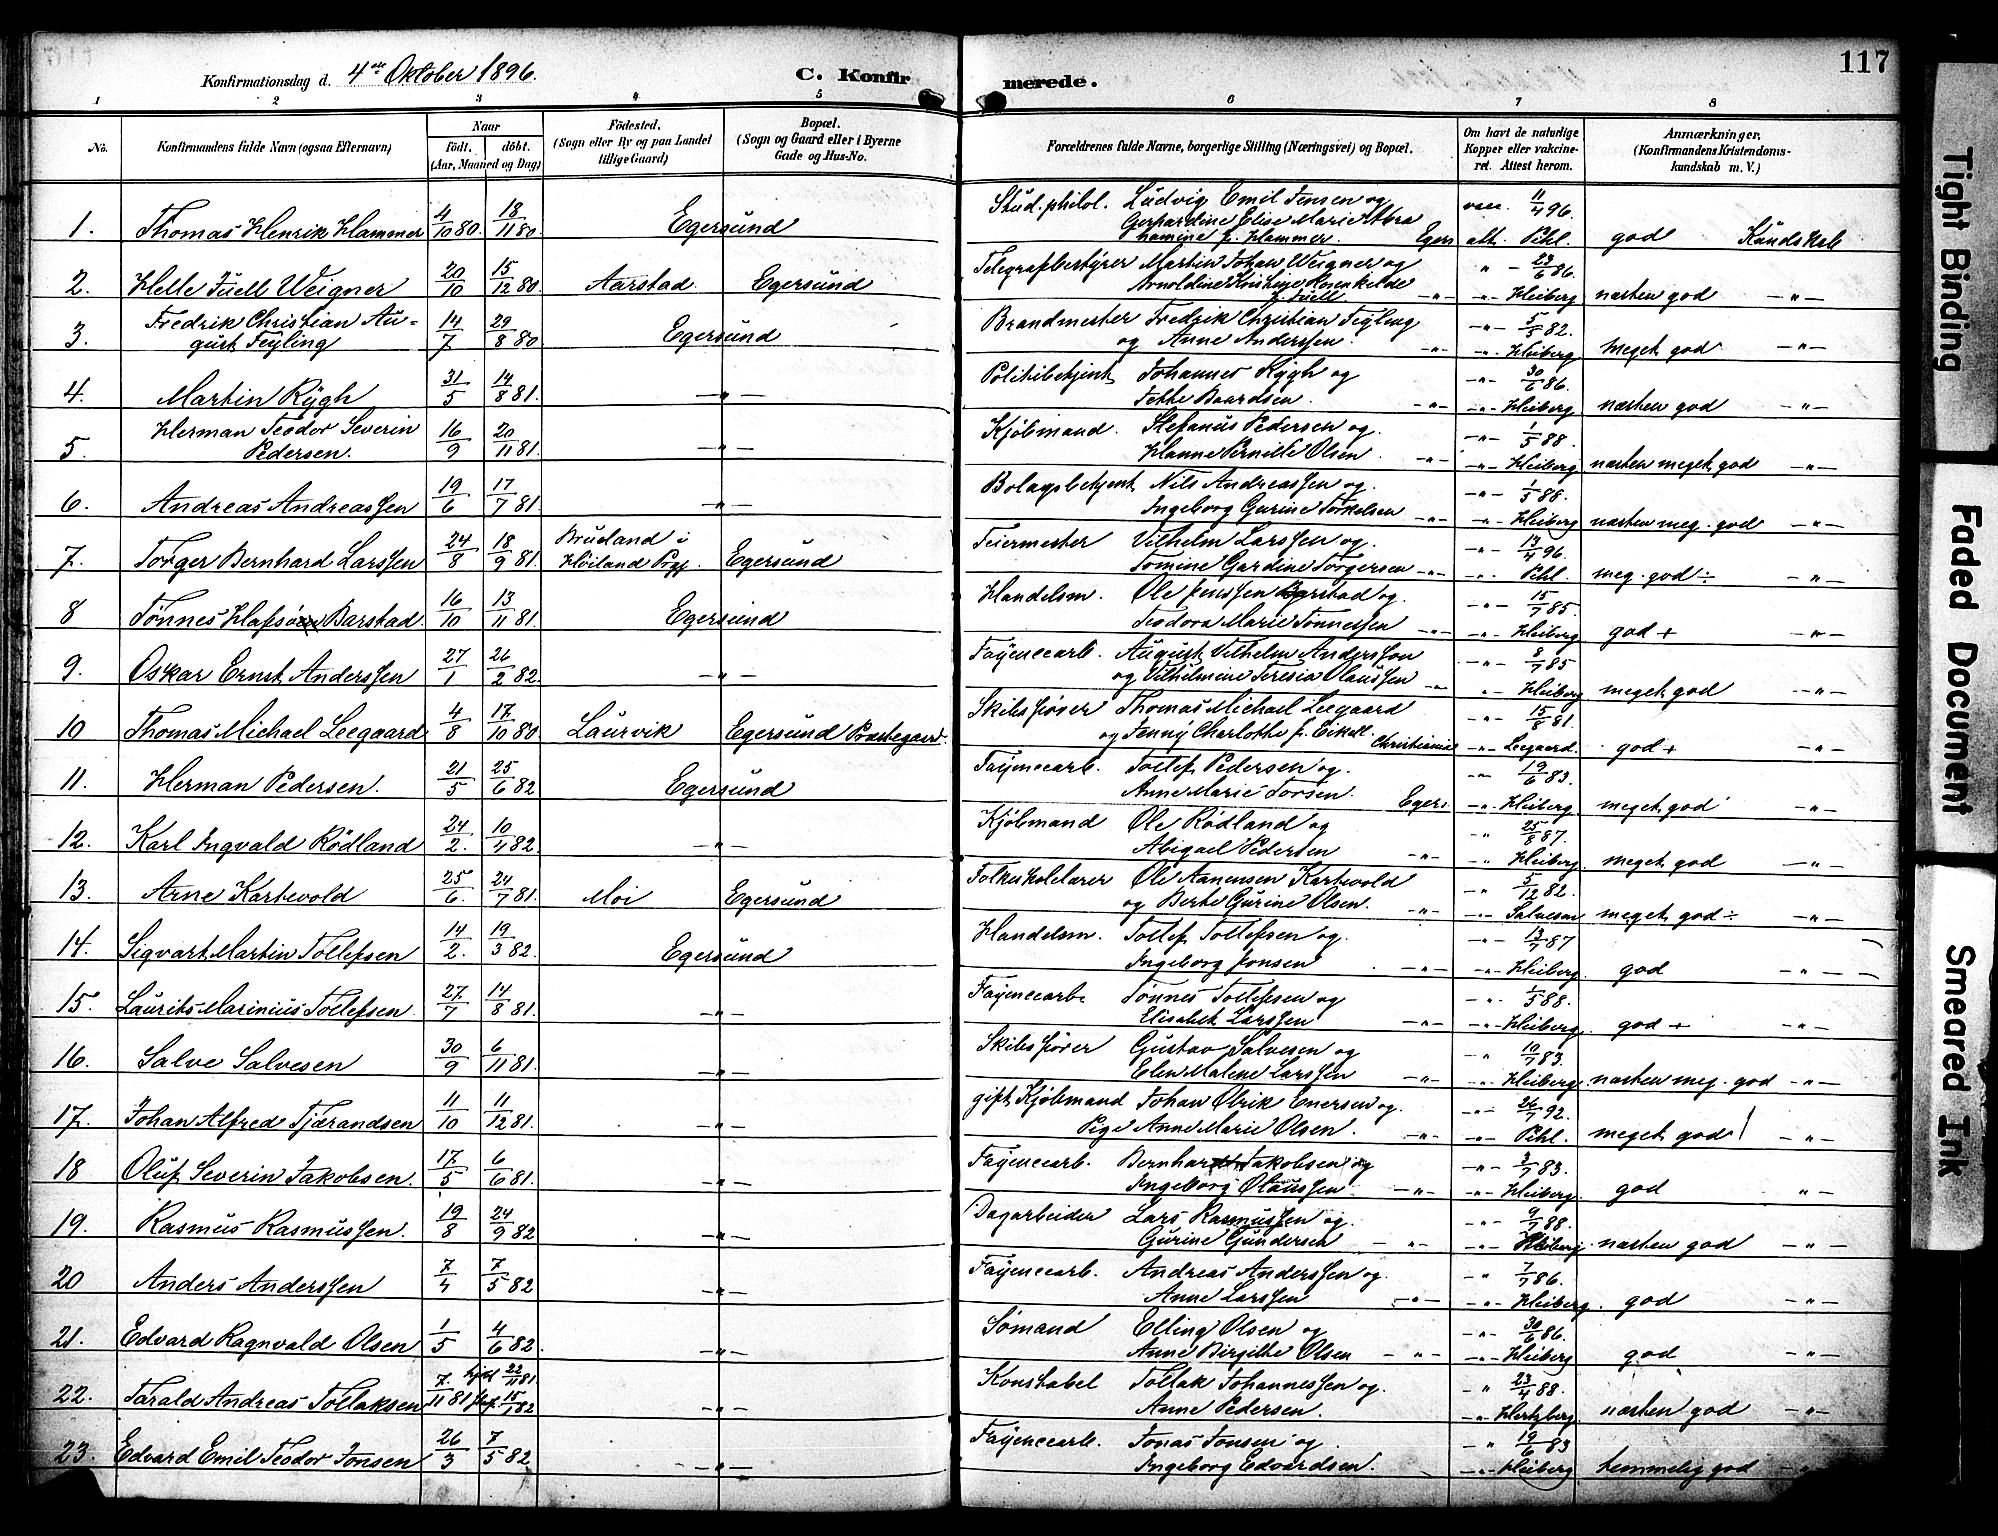 117
Konfirmationsdag d. 4de Oktober 1896. C. Konfirmerede.
1 2 3 4 5 6 7 8
No. Konfirmandens fulde Navn (ogsaa Efternavn) Naar födt. döbt. (Aar, Maaned og Dag) Födested. (Sogn eller By og paa Landet tillige Gaard) Bopæl. (Sogn og Gaard eller i Byerne Gade og Hus-No. Forældrenes fulde Navne, borgerlige Stilling (Næringsvei) og Bopæl. Om havt de naturlige Kopper eller vakcineret. Attest herom. Anmærkninger. (Konfirmandens Kristendomskundskab m. V.)
1. Thomas Henrik Hammer 4/10 80 18/11 80 Egersund Stud. philol. Ludvig Emil Jensen og Gerhardine Elise Marie Abrahamine f. Hammer. Egers vac. 11/4 96. att. Pihl. god Kundskab
2. Helle Juell Weigner 20/10 15/12 80 Aarstad Egersund Telegrafbestyrer Martin Johan Weigner og Arnoldine Kristine Rosenkilde f. Juell -"- " - 23/6 86. -"- Heiberg næsten god -"-
3. Fredrik Christian August Feyling 14/7 29/8 80 Egersund Brandmester Fredrik Christian Feyling og Anne Anderssen. -"- -"- 5/5 82. -"- Heiberg meget god -"-
4. Martin Rygh 31/5 14/8 81. -"- Politibetjent Johannes Rygh og Tette Baardsen. -"- -"- 30/6 86. -"- Heiberg næsten god -"-
5. Herman Teodor Severin Pedersen. 16/9 20/11 81. -"- Kjøbmand. Stefanus Pedersen og Hanne Pernille Olsen -"- -"- 1/5 88. -"- Heiberg næsten meget god -"-
6. Andreas Andreassen 19/6 17/7 81 -"- Bolagsbetjent Nils Andreassen og Ingeborg Gurine Torkelsen -"- -"- 1/5 88. -"- Heiberg næsten meg. god -"-
7. Torger Bernhard Larssen 24/8 18/9 81. Brueland i Høiland Prgj. Egersund Feiermester Vilhelm Larssen og Tomine Gardine Torgersen -"- -"- 13/4 96. -"- Pihl. meg. god ÷ -"-
8 Tønnes Hafsøe Barstad 16/10 13/11 81 Egersund Handelsm. Ole Jenssen Barstad og Teodora Marie Tønnessen -"- -"- 15/7 85. -"- Heiberg god + -"-
9. Oskar Ernst Anderssen 27/1 26/2 82 -"- Fayencearb. August Vilhelm Anderssen og Vilhelmine Teresia Olaussen -"- -"- 8/7 85 " Heiberg meget god -"-
10 Thomas Michael Leegaard 4/8 17/10 80 Laurvik Egersund Præstegaard. Skibsfører Thomas Michael Leegaard og Jenny Charlotte f. Eikell. Christiania -"- 15/8 81. -"- Leegaard. god + "-
11. Herman Pedersen. 21/5 25/6 82 Egersund Fayencearb. Tollef Pedersen og Anne Marie Torsen. Egers. -"- 19/6 83. -"- Heiberg meget god "-
12. Karl Ingvald Rödland 24/2. 10/4 82 -"- Kjøbmand Ole Rödland og Abigael Pedersen -"- -" 25/8 87. -"- Heiberg. meget god -"-
13. Arne Kartevold 25/6. 24/7 81. Moi Egersund Folkeskolelærer Ole Aanensen Kartevold og Berte Gurine Olsen. -"- -"- 5/12 82. -"- Salvesen meget god ÷ -"-
14. Sigvart Martin Tollefsen 14/2. 19/3 82. Egersund Handelsm. Tollef Tollefsen og Ingeborg Jonsen -"- -"- 13/7 87 -"- Heiberg. god -"-
15. Laurits Marinius Tollefsen 27/7 14/8 81. -"- Fayencearb. Tønnes Tollefsen og Elisabet Larssen -"- -"- 1/5 88. -"- Heiberg god + "-
16. Salve Salvesen 30/9 6/11 81. -"- Skibsfører Gustav Salvesen og Elen Malene Larssen -"- -" 10/7 83. -"- Heiberg næsten meg. god -"-
17. Johan Alfred Tjærandsen 11/10 11/12 81. -"- gift Kjøbmand Johan Olrik Enersen og Pige Anne Marie Olsen. -"- -"- 26/7 92. -"- Pihl. meget god! -"-
18 Oluf Severin Jakobsen. 17/5 6/6 81. -"- Fayencearb. Bernhard Jakobsen og Ingeborg Olaussen. -"- -"- 3/7 83. -"- Heiberg. god "-
19. Rasmus Rasmussen. 19/8 24/9 82 -"- Dagarbeider Lars Rasmussen og Gurine Gundersen -"- -"- 9/7 88. -"- Heiberg næsten god -"-
20 Anders Anderssen 7/4 7/5 82 -"- Fayencearb. Andreas Anderssen og Anne Larssen -"- -" 7/7 86. -"- Heiberg. god -"-
21. Edvard Ragnvald Olsen 1/5 4/6 82 -"- Sømand Elling Olsen og Anne Birgitte Olsen -"- -"- 30/6 86. -"- Heiberg god -"-
22. Tarald Andreas Tollaksen 7/11 81 hjd 22/11 81. 15/1 82 -"- Konstabel Tollak Johannessen og Anne Pedersen. -" 23/4 88. -"- Hertzberg næsten god -"-
23. Edvard Emil Teodor Jonsen 26/3 7/5 82 -"- Fayencearb. Jonas Jonsen og Ingeborg Edvardsen. -"- -" 19/6 83 -"- Heiberg temmelig god -"
Tight Binding
Faded Document
Smeared Ink